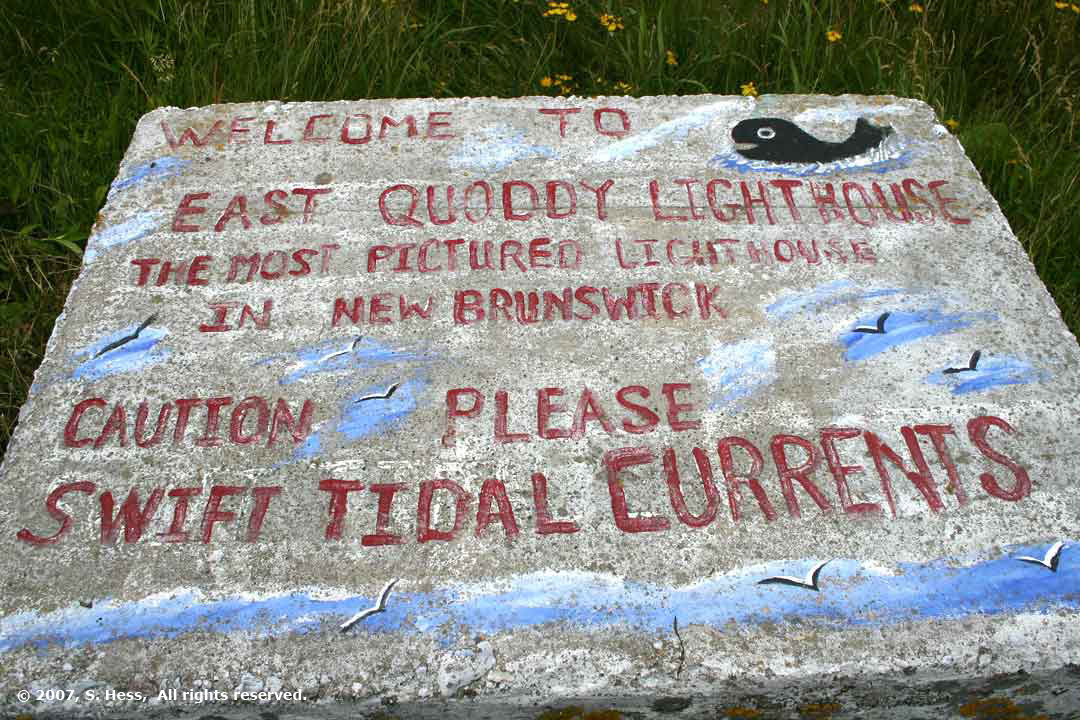 WELCOME TO
EAST QUODDY LIGHTHOUSE
THE MOST PICTURED LIGHTHOUSE
IN NEW BRUNSWICK
CAUTION PLEASE
SWIFT TIDAL CURRENTS
© 2007, S. Hess, All rights reserved.